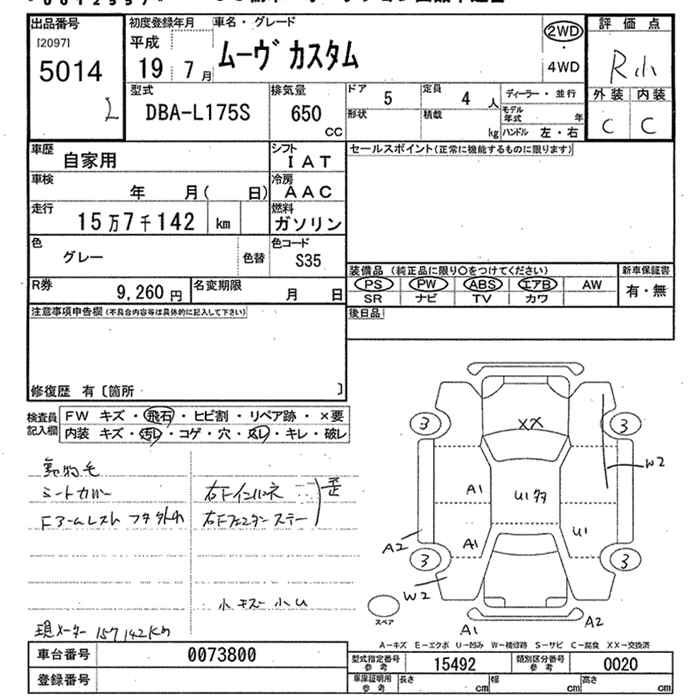 出品番号
[2097]
5014
初度登録年月
平成
19 7月
車名・グレード
ムーヴ カスタム
2WD
・
4WD
評価点
R小
外装 内装
C C
型式
DBA-L175S
排気量
650
cc
ドア 5
定員 4 人
形状
積載 kg
ディーラー・並行
モデル年式 年
ハンドル 左・右
車歴
自家用
シフト
IAT
セールスポイント(正常に機能するものに限ります)
車検
年 月( 日)
冷房
AAC
走行
15万7千142 km
燃料
ガソリン
色
グレー
色替
色コード
S35
R券
9,260円
名変期限
月 日
装備品(純正品に限り○をつけてください)
新車保証書
PS PW ABS エアB AW
有・無
SR ナビ TV カワ
後日品
注意事項申告欄(不具合内容等は具体的に記入して下さい)
修復歴 有〔箇所 〕
検査員記入欄
FW キズ・飛石・ヒビ割・リペア跡・×要
内装 キズ・汚レ・コゲ・穴・凹レ・キレ・破レ
動物毛
シートカバー
Fアームレスト フタ外れ
右Fインパネ
右Fフェンダーステー
歪
小キズ小U
現メーター157142km
3
3
XX
W2
A1
U1多
A1
U1
A2
3
3
W2
スペア
A1
A2
A-キズ E-エクボ U-凹み W-補修跡 S-サビ C-腐食 XX-交換済
車台番号
0073800
登録番号
型式指定番号参考
15492
類別区分番号参考
0020
車庫証明用参考
長さ cm
幅 cm
高さ cm